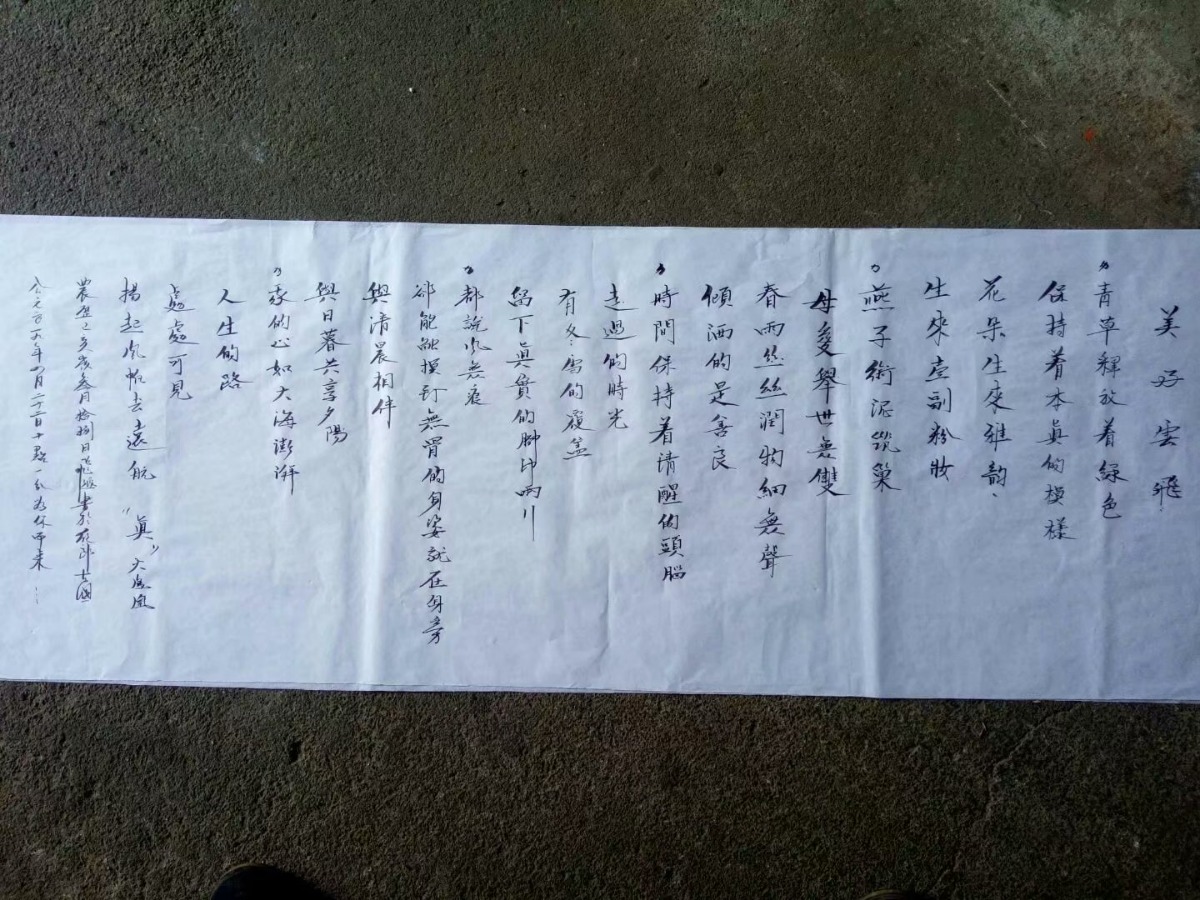 美好雲飛
青草釋放着綠色
保持着本真的模樣
花朵生來雅韵、
生來壹副粉妝
燕子銜泥筑巢
母愛舉世無雙
春雨丝丝潤物細無聲
傾洒的是善良
時間保持着清醒的頭腦
走過的時光
有冬雪的覆盖
留下真實的脚印
都說风無痕
卻能触摸到無骨的身姿就在身旁
與清晨相伴
與日暮共享夕陽
我的心如大海澎湃
人生的路
處處可見
揚起风帆去遠航 “真”大度風
農曆 月拾捌日 書於
年四月二十三日十點一分